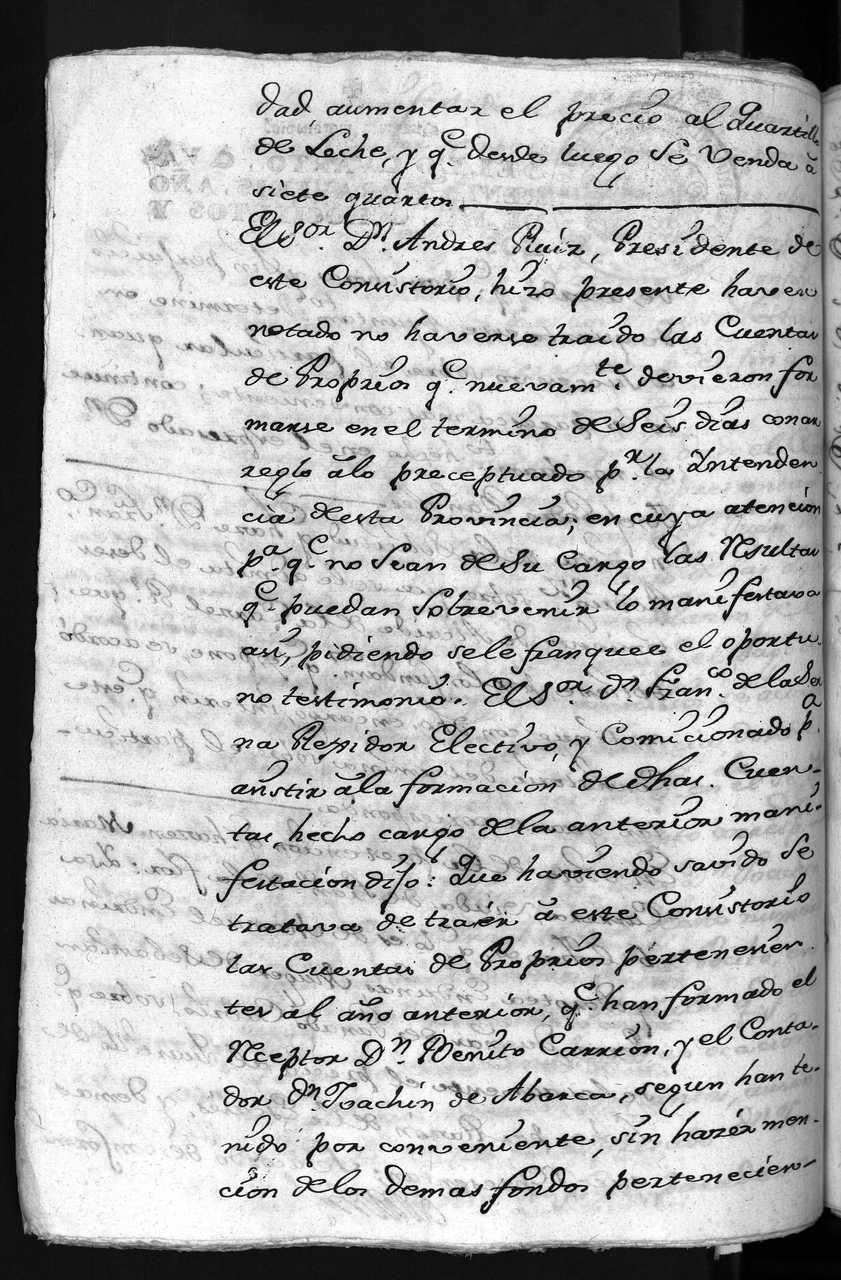 dad aumentar el precio al Quartillo
de Leche, y q.e desde luego se venda â
siete quartos.
El S.or D.n Andres Ruiz, Presidente de
este Consistorio, hizo presente haver
notado no haverse traido las Cuentas
de Proprios q.e nuevam.te devieron for
marse en el termino de Seis dias con ar
reglo âlo preceptuado p.r la Yntenden
cia desta Provincia; en cuya atencion
p.a q.e no sean de su Cargo las Rsultas
q.e puedan Sobrevenir lo manifestava
asi, pidiendo sele franquee el oportu
no testimonio. El S.or D.n Fran.co de la Ser
na Rexidor Electivo y Comicionado p.a
asistir âla formacion de dhas. Cuen-
tas, hecho cargo de la anterior mani-
festacion dijo: Que haviendo savido se
tratava de traer â este Consistorio
las Cuentas de Proprios pertenesien
tes al año anterior, q.e han formado el
Rceptor D.n Benito Carrion, y el Conta-
dor D.n Joachin de Abarca, segun han te-
nido por conveniente, sin hazér men-
cion de los demas fondos pertenecien-